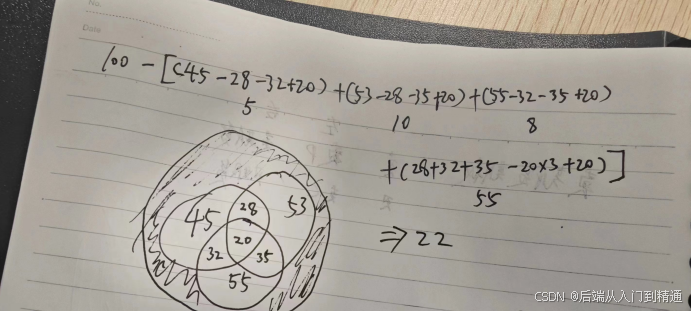 No.
Date
100 - [(45-28-32+20) + (53-28-35+20) + (55-32-35+20)
5 10 8
+ (28+32+35-20×3+20)]
55
⇒ 22
45 28 53
20
32 35
55
CSDN @后端从入门到精通